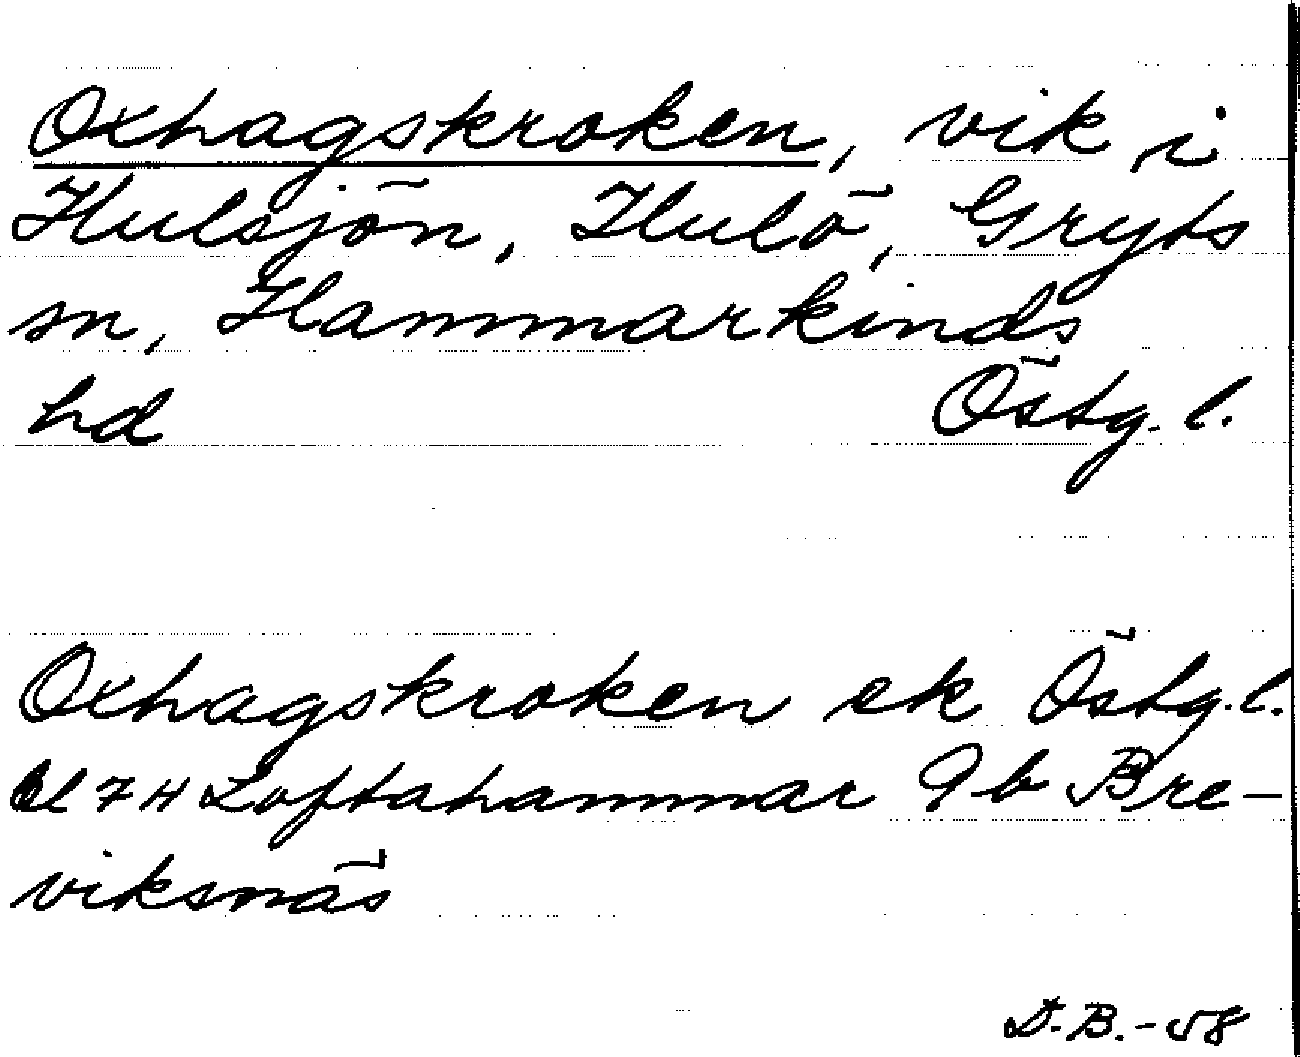 Oxhagskroken, vik i
Hulsjön, Hulö, Gryts
sn, Hammarkinds
hd Östg. l.
Oxhagskroken ek Östg. l.
bl 7 H Loftahammar 9 b Bre-
viksnäs
D.B.-58